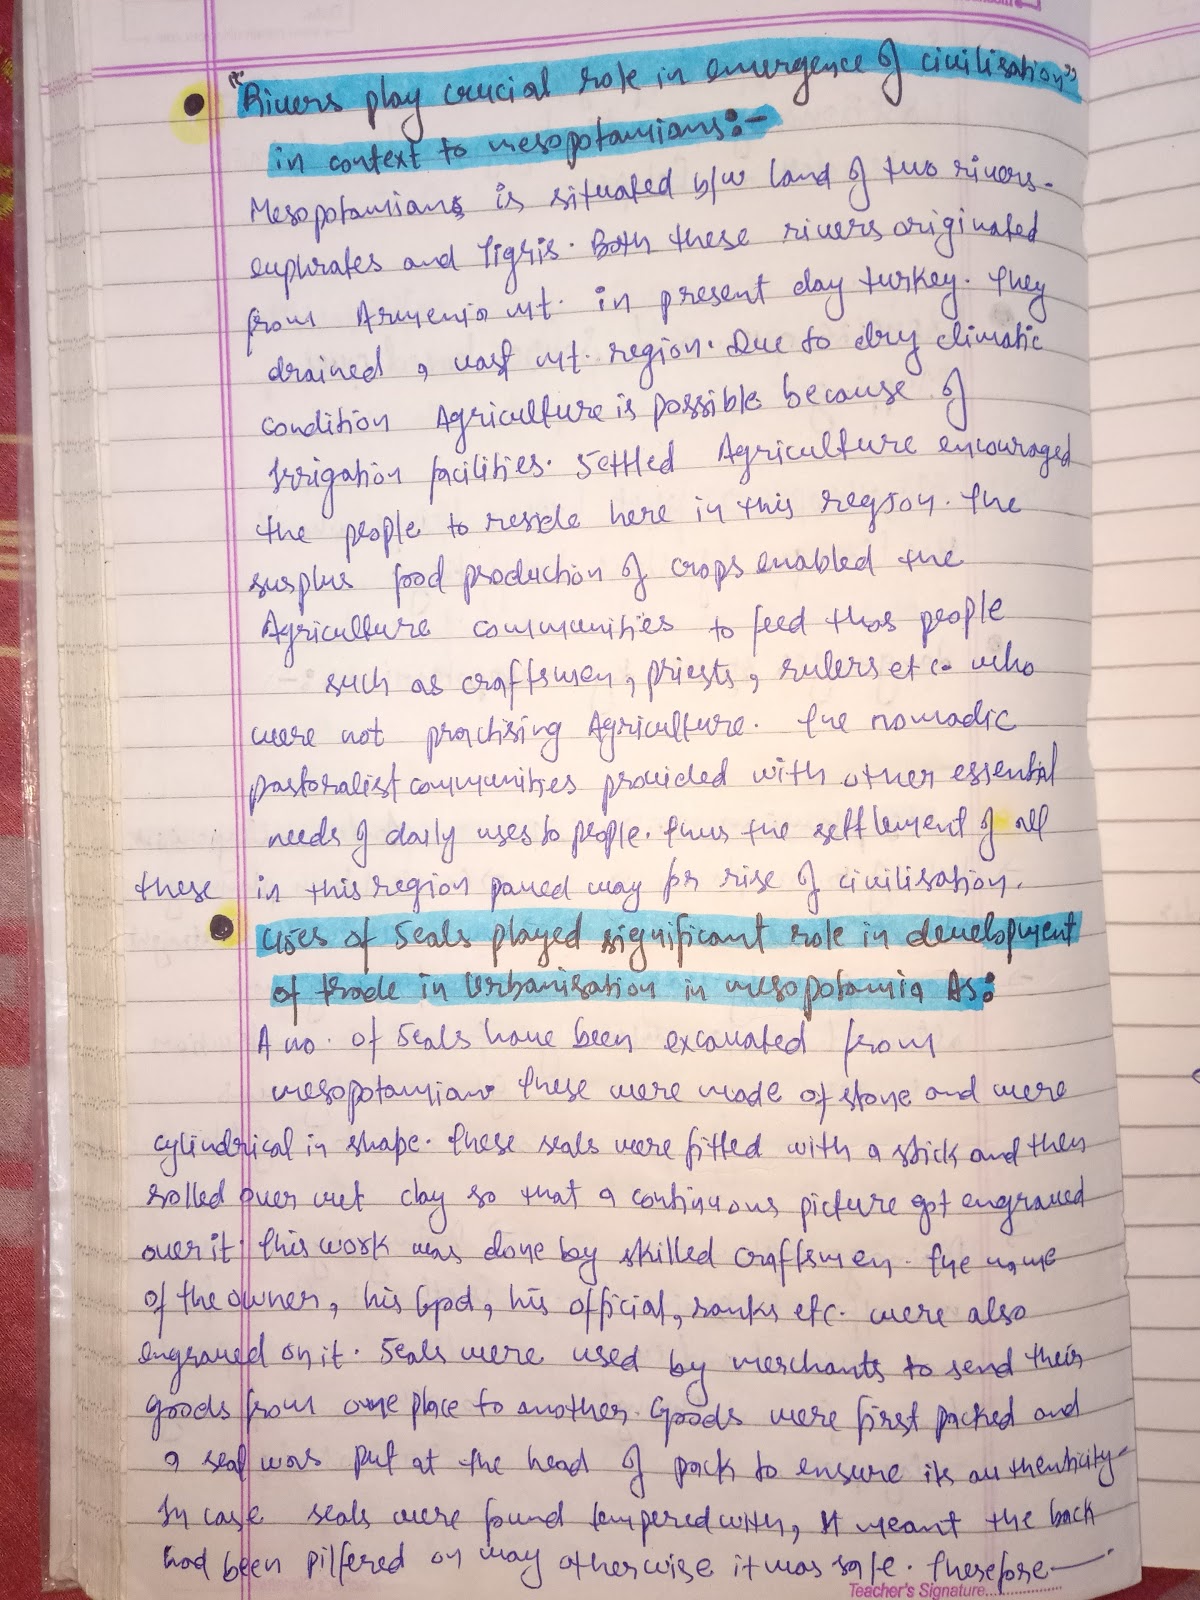 "Rivers play crucial role in emergence of civilisation"
in context to mesopotamians:-
Mesopotamians is situated b/w land of two rivers-
euphrates and Tigris. Both these rivers originated
from Armenia mt. in present day turkey. They
drained a vast mt. region. Due to dry climatic
condition Agriculture is possible because of
Irrigation facilities. Settled Agriculture encouraged
the people to reside here in this region. The
surplus food production of crops enabled the
Agriculture communities to feed thos people
such as craftsmen, priests, rulers etc. who
were not practising Agriculture. The nomadic
pastoralist communities provided with other essential
needs of daily uses to people. Thus the settlement of all
these in this region paved way for rise of civilisation.
Uses of Seals played significant role in development
of trade in Urbanisation in mesopotamia As:
A no. of Seals have been excavated from
mesopotamian these were made of stone and were
cylindrical in shape. These seals were fitted with a stick and then
rolled over wet clay so that a continuous picture got engraved
over it. This work was done by skilled craftsmen. The name
of the owner, his God, his official, ranks etc. were also
engraved on it. Seals were used by merchants to send their
goods from one place to another. Goods were first packed and
a seal was put at the head of pack to ensure its authenticity-
In case seals were found tempered with, It meant the back
had been pilfered on way otherwise it was safe. Therefore-
Teacher's Signature